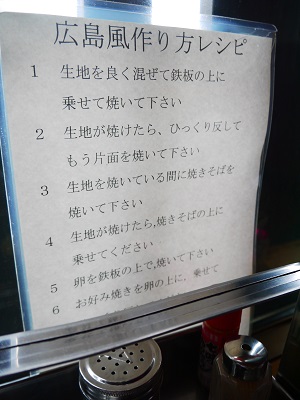 広島風作り方レシピ
1 生地を良く混ぜて鉄板の上に
乗せて焼いて下さい
2 生地が焼けたら、ひっくり反して
もう片面を焼いて下さい
3 生地を焼いている間に焼きそばを
焼いて下さい
4 生地が焼けたら,焼きそばの上に
乗せてください
5 卵を鉄板の上で,焼いて下さい
6 お好み焼きを卵の上に,乗せて